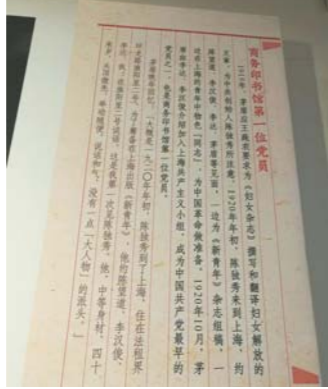 商务印书馆第一位党员
1919年，茅盾应王莼农要求为《妇女杂志》撰写和翻译妇女解放的
文章，为中共创始人陈独秀所注意。1920年年初，陈独秀来到上海，约
陈望道、李汉俊、李达、茅盾等见面，一边为《新青年》杂志组稿，一
边在上海的青年中物色「同志」，为中国革命做准备。1920年10月，茅
盾由李达、李汉俊介绍加入上海共产主义小组，成为中国共产党最早的
党员之一，也是商务印书馆第一位党员。
茅盾晚年回忆，「大概是一九二〇年年初，陈独秀到了上海，住在法租界
环龙路渔阳里二号。为了筹备在上海出版《新青年》，他约陈望道、李汉俊、
李达、我，在渔阳里二号谈话。这是我第一次见陈独秀。他，中等身材，四十
来岁，头顶微秃，举动随便，说话和气，没有一点「大人物」的派头。」